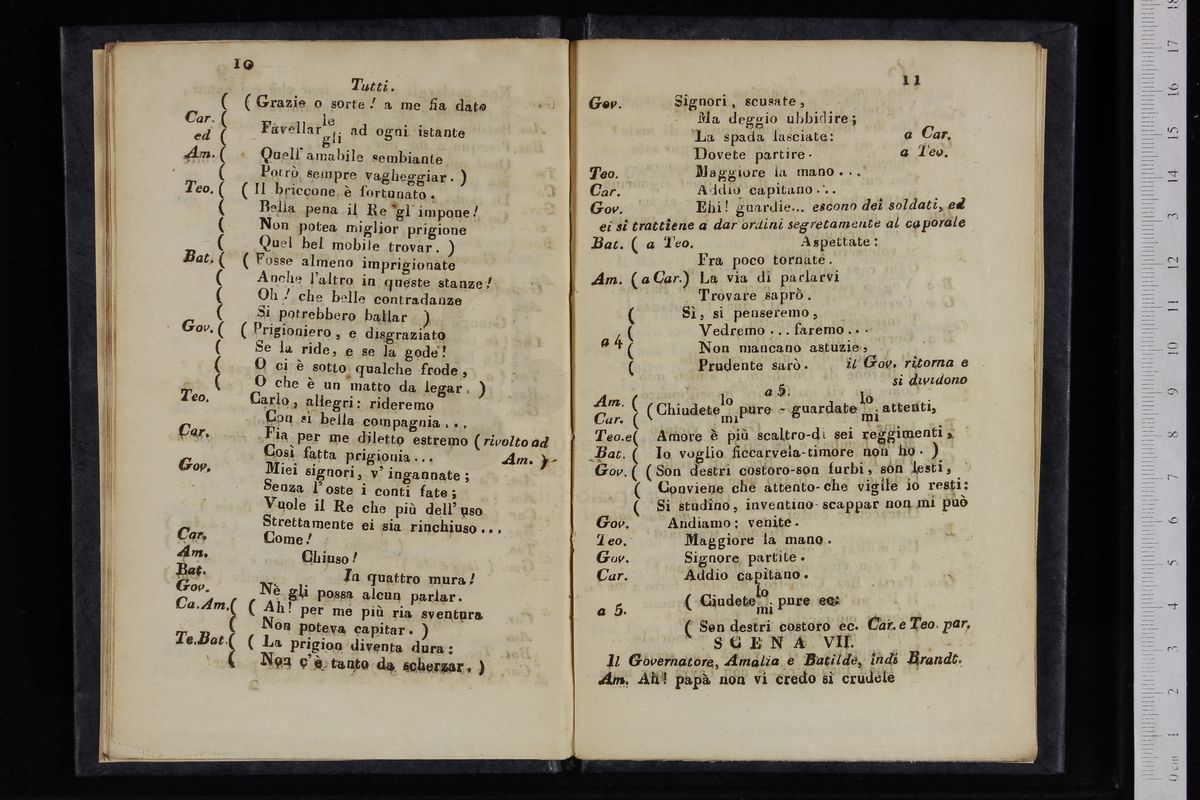 10
Tutti.
( ( Grazie o sorte! a me fia dato
Car. ( Favellar le/gli ad ogni istante
ed (
Am. ( Quell' amabile sembiante
( Potrò sempre vagheggiar. )
Teo. ( ( Il briccone è fortunato.
( Bella pena il Re gl' impone!
( Non potea miglior prigione
( Quel bel mobile trovar. )
Bat. ( ( Fosse almeno imprigionate
( Anche l'altro in queste stanze!
( Oh! che belle contradanze
( Si potrebbero ballar )
Gov. ( ( Prigioniero, e disgraziato
( Se la ride, e se la gode!
( O ci è sotto qualche frode,
( O che è un matto da legar. )
Teo. Carlo, allegri: rideremo
Con sì bella compagnia...
Car. Fia per me diletto estremo (rivolto ad
Così fatta prigionia... Am. )
Gov. Miei signori, v' ingannate;
Senza l'oste i conti fate;
Vuole il Re che più dell' uso
Strettamente ei sia rinchiuso...
Car. Come!
Am. Chiuso!
Bat. In quattro mura!
Gov. Nè gli possa alcun parlar.
Ca.Am. ( ( Ah! per me più ria sventura
( Non poteva capitar. )
Te.Bat. ( ( La prigion diventa dura:
( Non c'è tanto da scherzar. )
11
Gov. Signori, scusate,
Ma deggio ubbidire;
La spada lasciate: a Car.
Dovete partire. a Teo.
Teo. Maggiore la mano...
Car. Addio capitano...
Gov. Ehi! guardie... escono dei soldati, ed
ei si trattiene a dar ordini segretamente al caporale
Bat. ( a Teo. Aspettate:
Fra poco tornate.
Am. (a Car.) La via di parlarvi
Trovare saprò.
( Sì, si penseremo,
a 4 ( Vedremo... faremo...
( Non mancano astuzie,
( Prudente sarò. il Gov. ritorna e
si dividono
a 5.
Am. (
Car. ( (Chiudete lo/mi pure - guardate lo/mi attenti,
Teo.e ( Amore è più scaltro-di sei reggimenti,
Bat. ( Io voglio ficcarvela-timore non ho. )
Gov. ( ( Son destri costoro-son furbi, son lesti,
( Conviene che attento-che vigile io resti:
( Si studino, inventino-scappar non mi può
Gov. Andiamo: venite.
Teo. Maggiore la mano.
Gov. Signore partite.
Car. Addio capitano.
a 5. ( Ciudete lo/mi pure ec:
( Son destri costoro ec. Car. e Teo. par.
SCENA VII.
Il Governatore, Amalia e Batilde, indi Brandt.
Am. Ah! papà non vi credo sì crudele